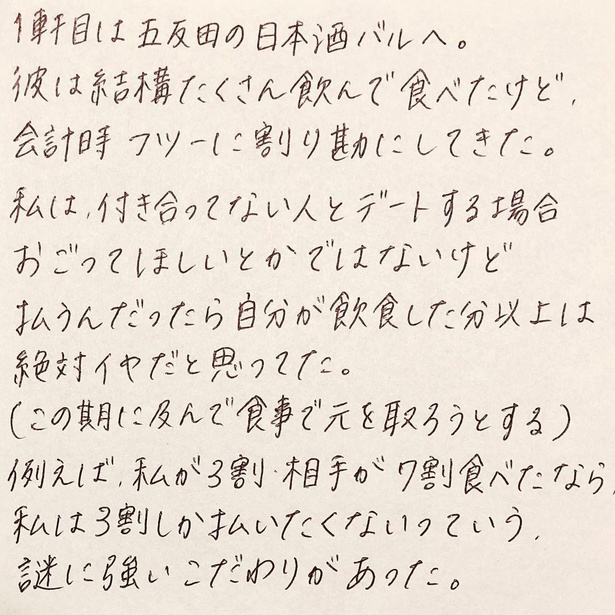 1軒目は五反田の日本酒バルへ。
彼は結構たくさん飲んで食べたけど、
会計時フツーに割り勘にしてきた。
私は、付き合ってない人とデートする場合
おごってほしいとかではないけど
払うんだったら自分が飲食した分以上は
絶対イヤだと思ってた。
(この期に及んで食事で元を取ろうとする)
例えば、私が3割・相手が7割食べたなら、
私は3割しか払いたくないっていう、
謎に強いこだわりがあった。